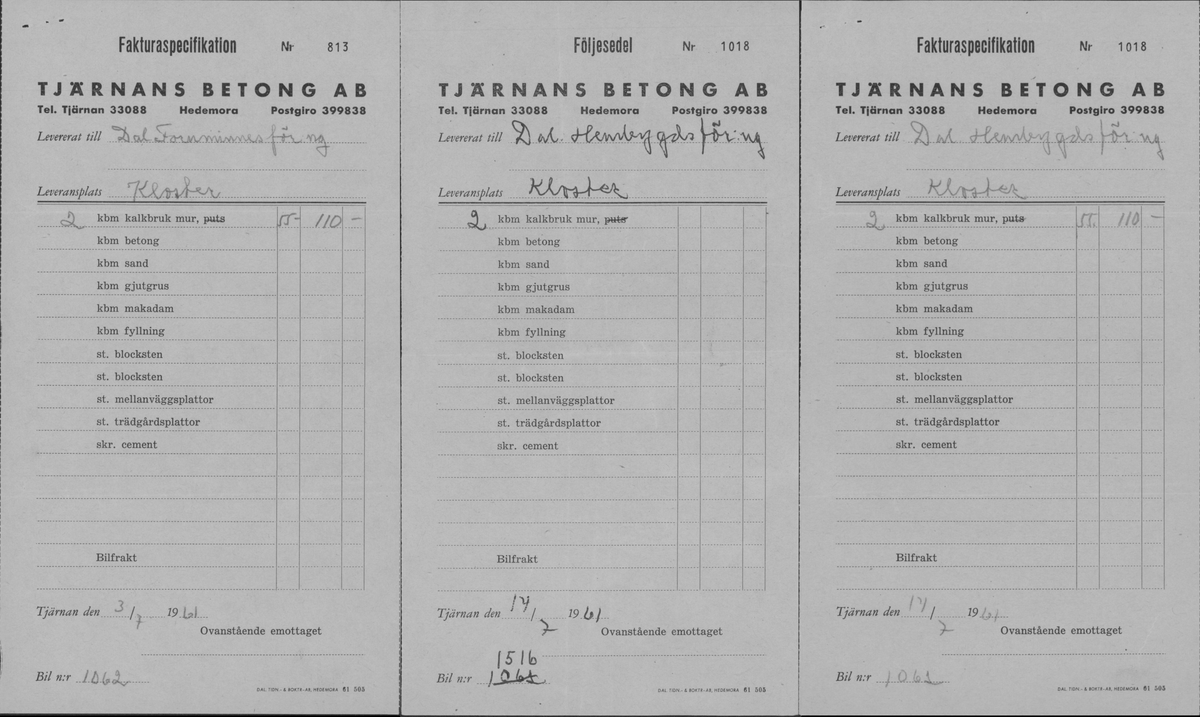 Fakturaspecifikation Nr 813
TJÄRNANS BETONG AB
Tel. Tjärnan 33088 Hedemora Postgiro 399838
Levererat till Dal. Fornminnesför:ng
Leveransplats Kloster
2 kbm kalkbruk mur, puts 55- 110 -
kbm betong
kbm sand
kbm gjutgrus
kbm makadam
kbm fyllning
st. blocksten
st. blocksten
st. mellanväggsplattor
st. trädgårdsplattor
skr. cement
Bilfrakt
Tjärnan den 3/7 1961
Ovanstående emottaget
Bil n:r 1062
DAL. TIDN.- & BOKTR-AB, HEDEMORA 61 505
Följesedel Nr 1018
TJÄRNANS BETONG AB
Tel. Tjärnan 33088 Hedemora Postgiro 399838
Levererat till Dal. Hembygdsför:ng
Leveransplats Kloster
2 kbm kalkbruk mur, puts
kbm betong
kbm sand
kbm gjutgrus
kbm makadam
kbm fyllning
st. blocksten
st. blocksten
st. mellanväggsplattor
st. trädgårdsplattor
skr. cement
Bilfrakt
Tjärnan den 14/7 1961
Ovanstående emottaget
1516
Bil n:r
DAL. TIDN.- & BOKTR-AB, HEDEMORA 61 505
Fakturaspecifikation Nr 1018
TJÄRNANS BETONG AB
Tel. Tjärnan 33088 Hedemora Postgiro 399838
Levererat till Dal. Hembygdsför:ng
Leveransplats Kloster
2 kbm kalkbruk mur, puts 55. 110 -
kbm betong
kbm sand
kbm gjutgrus
kbm makadam
kbm fyllning
st. blocksten
st. blocksten
st. mellanväggsplattor
st. trädgårdsplattor
skr. cement
Bilfrakt
Tjärnan den 14/7 1961
Ovanstående emottaget
Bil n:r
DAL. TIDN.- & BOKTR-AB, HEDEMORA 61 505